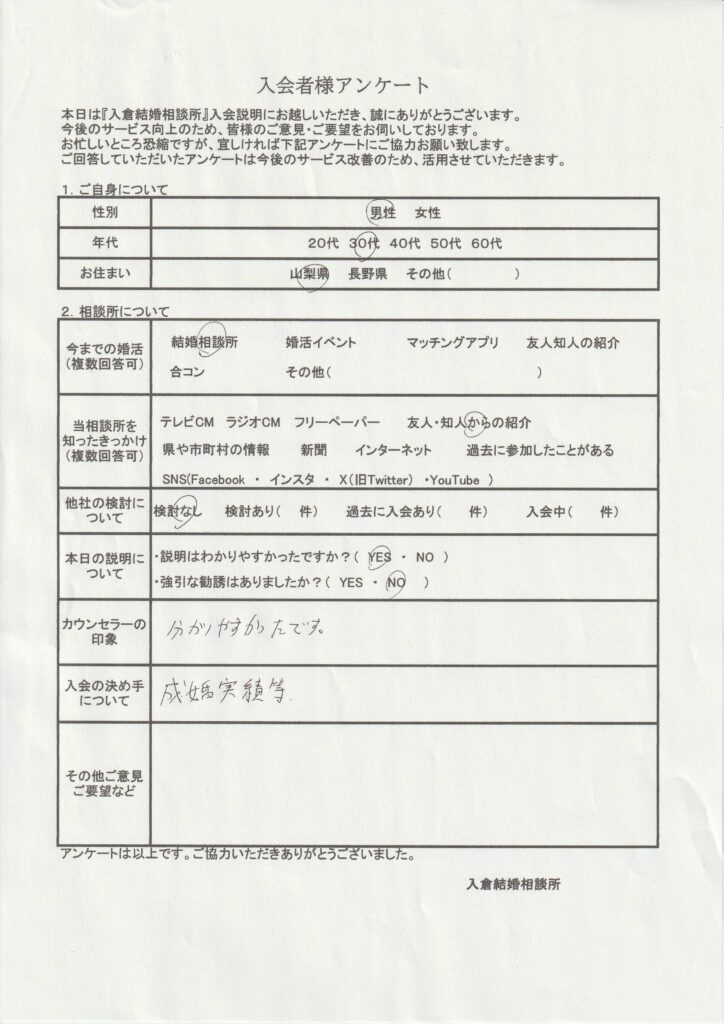 入会者様アンケート
本日は『入倉結婚相談所』入会説明にお越しいただき、誠にありがとうございます。
今後のサービス向上のため、皆様のご意見・ご要望をお伺いしております。
お忙しいところ恐縮ですが、宜しければ下記アンケートにご協力お願い致します。
ご回答していただいたアンケートは今後のサービス改善のため、活用させていただきます。
1. ご自身について
性別 男性 女性
年代 20代 30代 40代 50代 60代
お住まい 山梨県 長野県 その他( )
2. 相談所について
今までの婚活
(複数回答可)
結婚相談所 婚活イベント マッチングアプリ 友人知人の紹介
合コン その他( )
当相談所を
知ったきっかけ
(複数回答可)
テレビCM ラジオCM フリーペーパー 友人・知人からの紹介
県や市町村の情報 新聞 インターネット 過去に参加したことがある
SNS(Facebook ・ インスタ ・ X(旧Twitter) ・YouTube )
他社の検討に
ついて
検討なし 検討あり( 件) 過去に入会あり( 件) 入会中( 件)
本日の説明に
ついて
・説明はわかりやすかったですか?( YES ・ NO )
・強引な勧誘はありましたか?( YES ・ NO )
カウンセラーの
印象
分かりやすかったです。
入会の決め手
について
成婚実績等.
その他ご意見
ご要望など
アンケートは以上です。ご協力いただきありがとうございました。
入倉結婚相談所